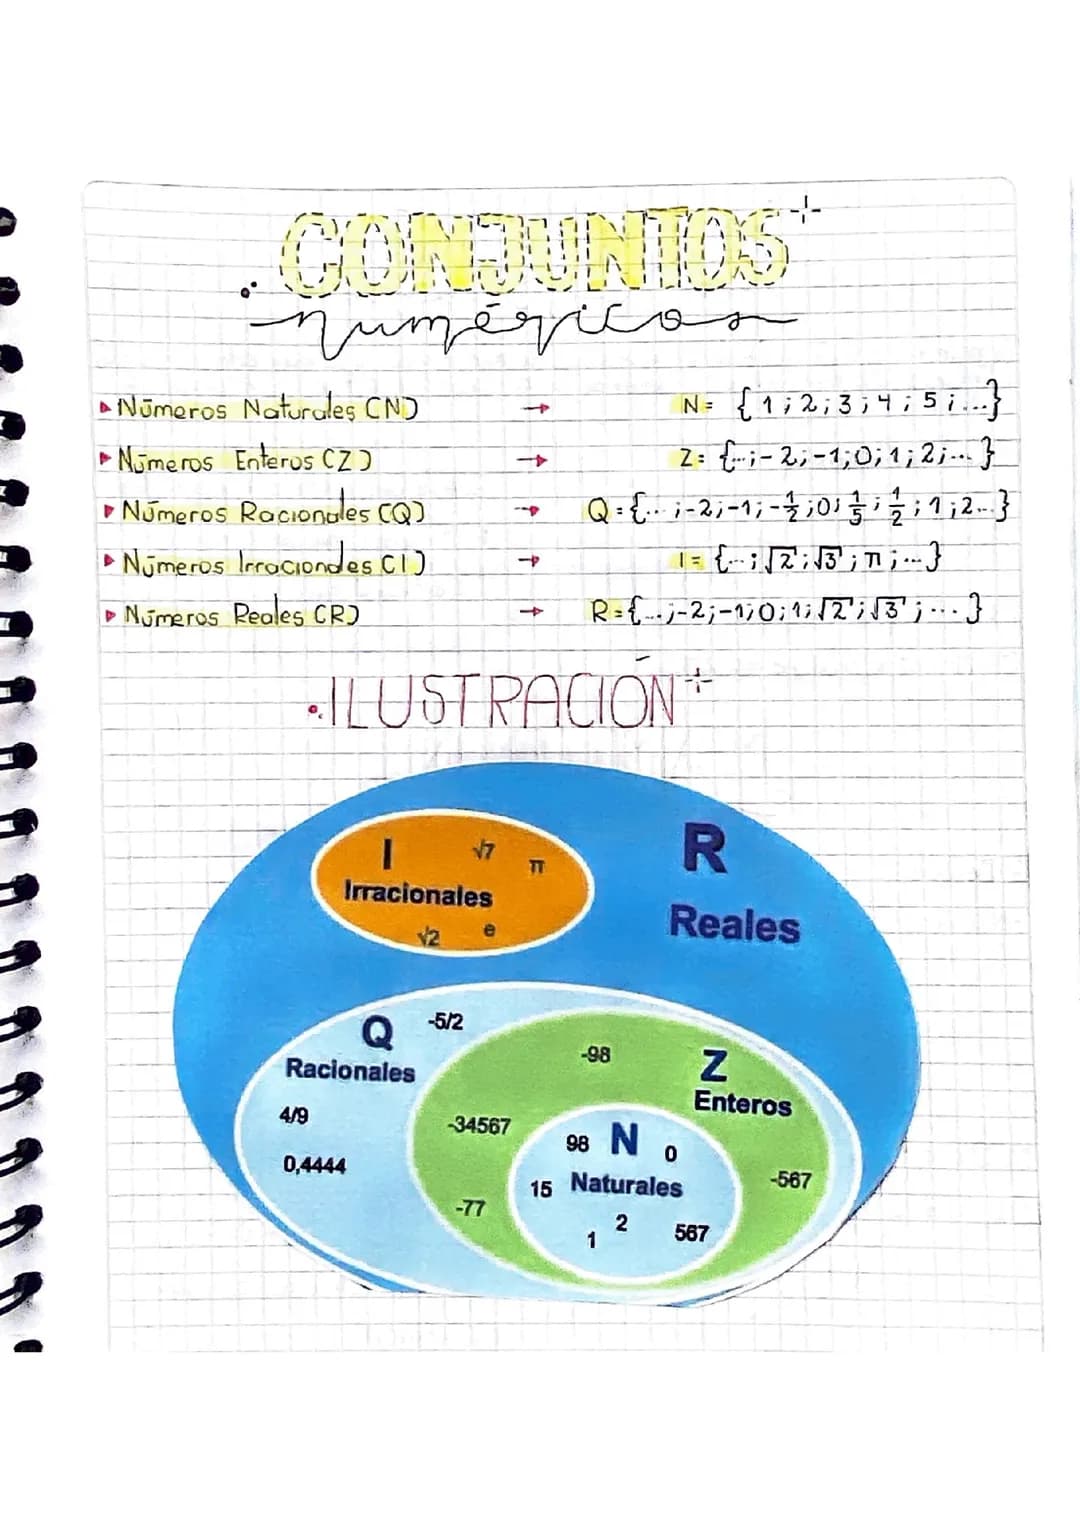 CONJUNTOS
numéricos
Números Naturales (N) → N = { 1 ; 2 ; 3 ; 4 ; 5 ; ... }
Números Enteros (Z) → Z = { ... ; -2 ; -1 ; 0 ; 1 ; 2 ; ... }
Números Racionales (Q) → Q = { ... ; -2 ; -1 ; -1/2 ; 0 ; 1/5 ; 1/2 ; 1 ; 2 ... }
Números Irracionales (I) → I = { ... ; √2 ; √3 ; π ; ... }
Números Reales (R) → R = { ... ; -2 ; -1 ; 0 ; 1 ; √2 ; √3 ; ... }
ILUSTRACIÓN
I √7 π
Irracionales
√2 e
R
Reales
Q -5/2
Racionales
4/9
0,4444
-98 Z
Enteros
-34567
-77
-567
98 N 0
15 Naturales
1 2 567